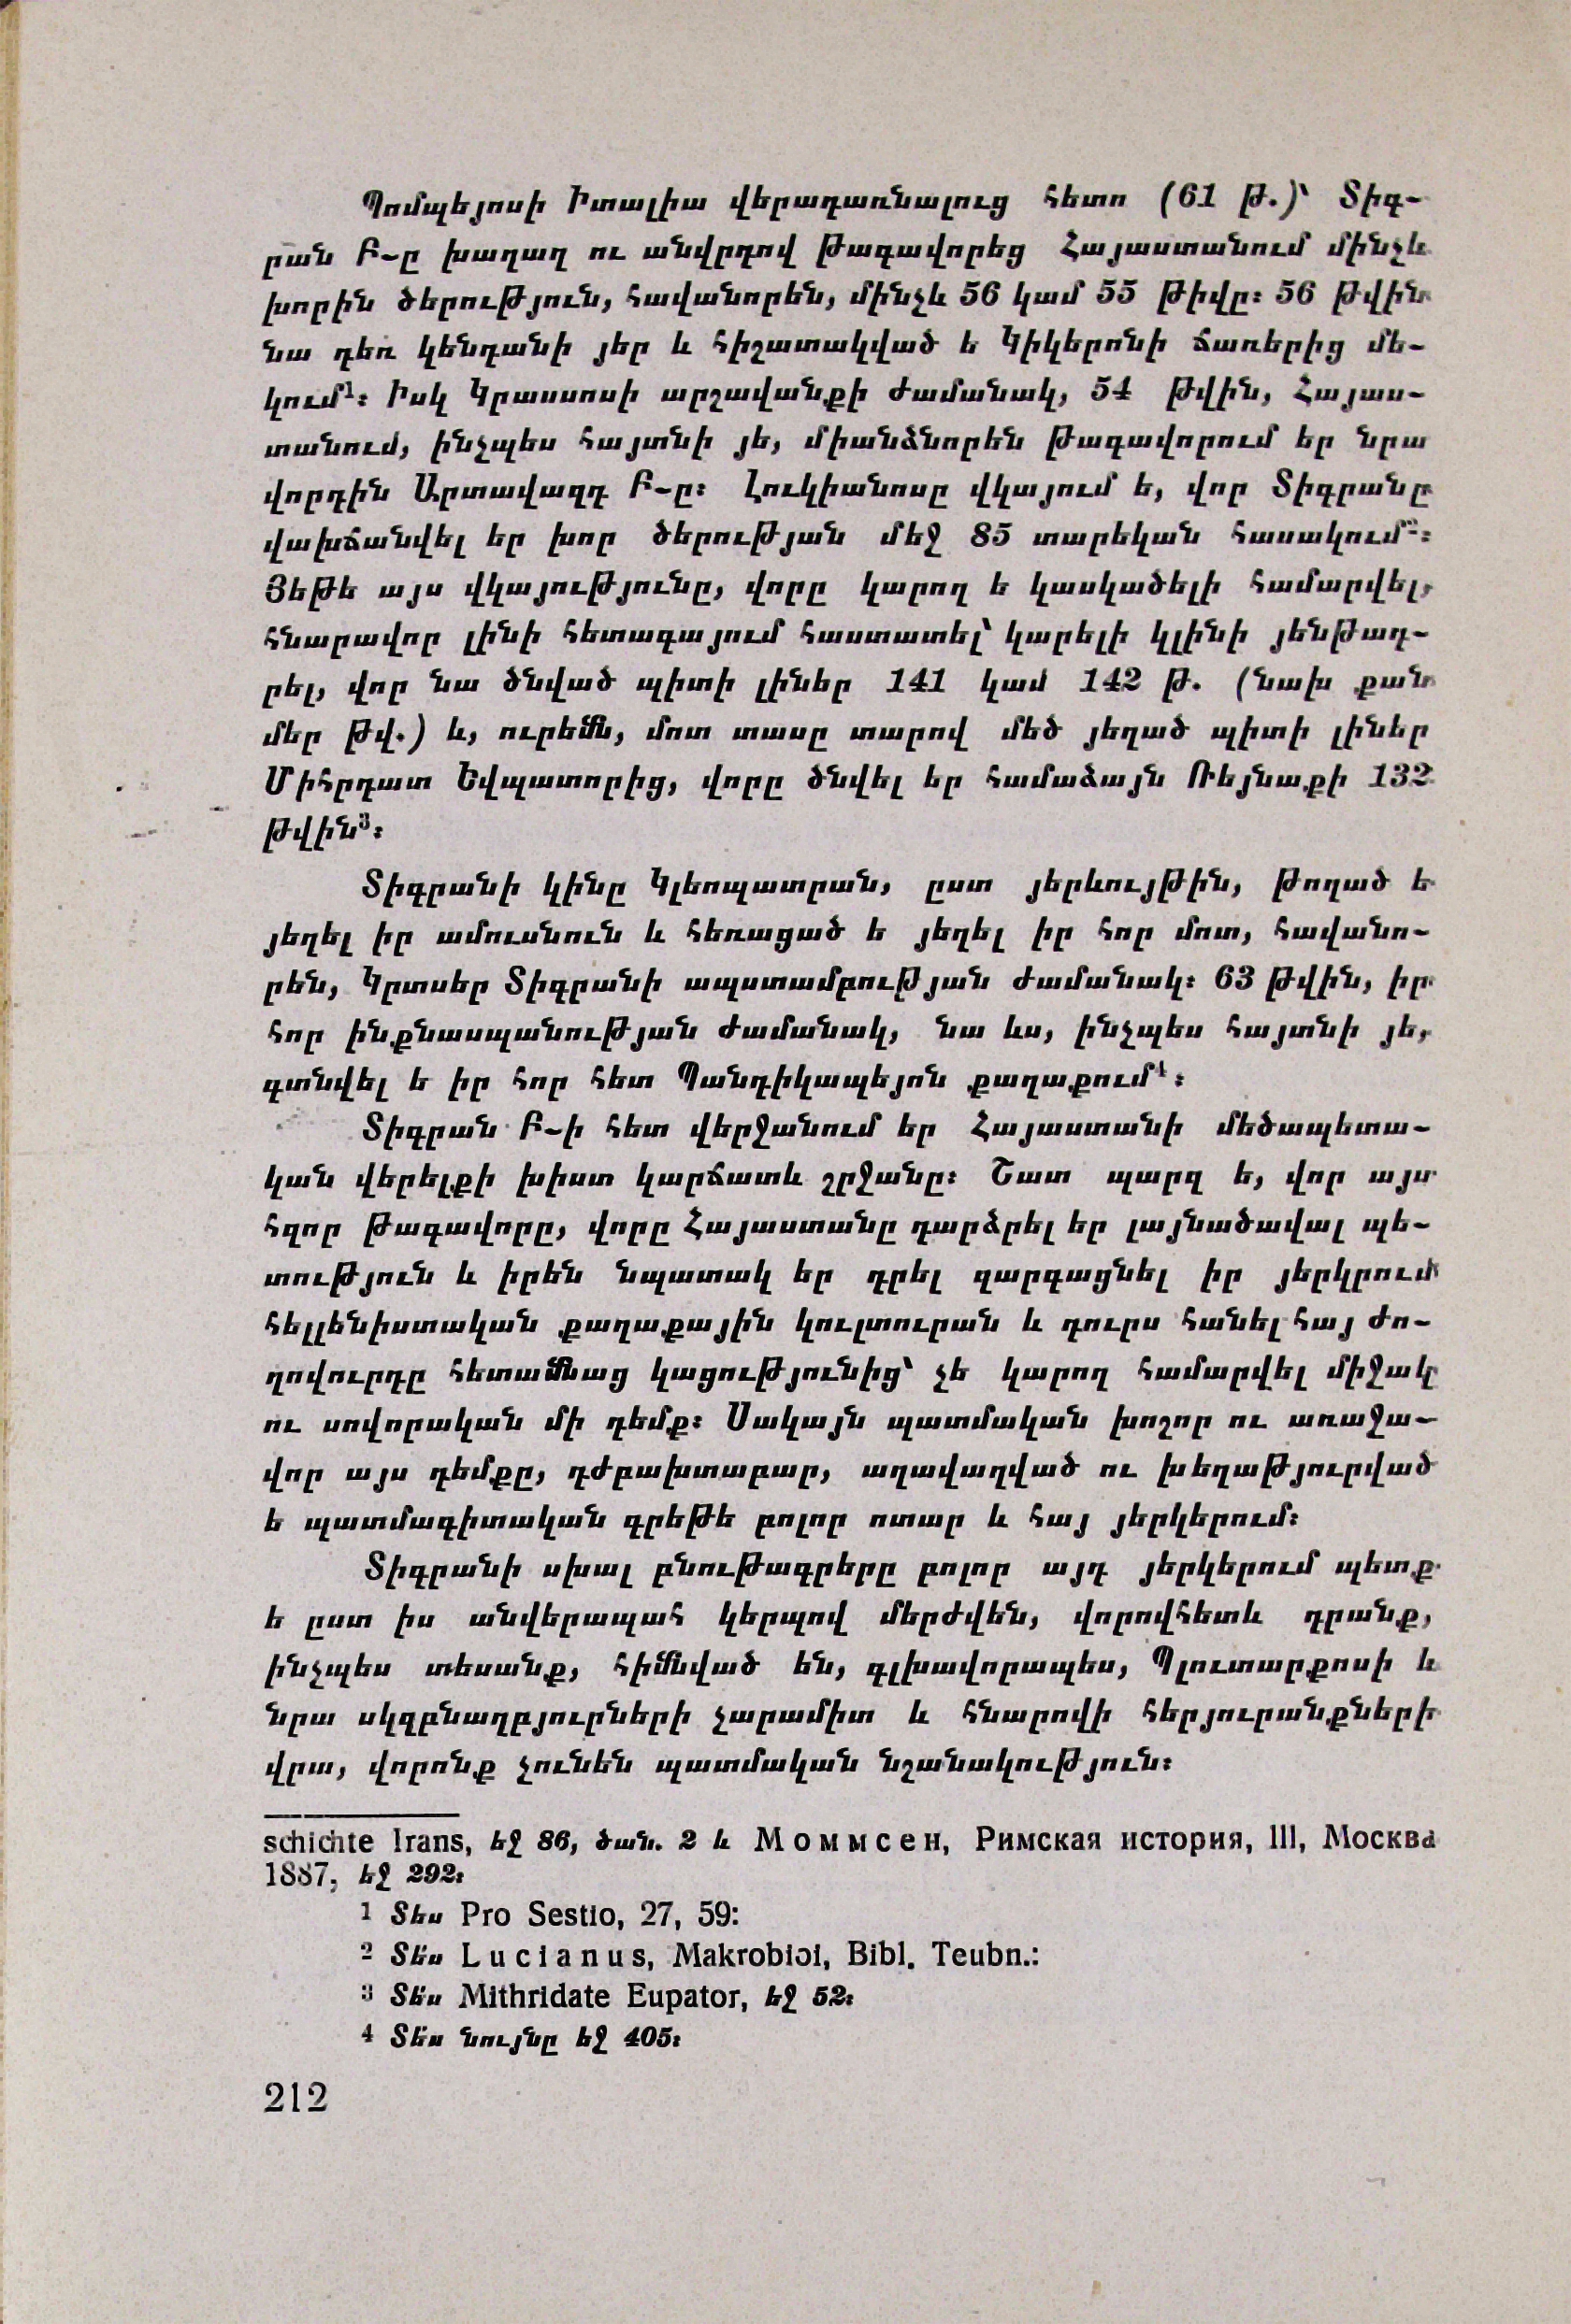 Պոմպեյոսի Իտալիա վերադառնալուց հետո (61 թ.)՝ Տիգ-
րան Բ-ը խաղաղ ու անվրդով թագավորեց Հայաստանում մինչև
խորին ծերություն, հավանորեն, մինչև 56 կամ 55 թիվը։ 56 թվին
նա դեռ կենդանի յեր և հիշատակված ե Կիկերոնի ճառերից մե-
կում¹։ Իսկ Կրասսոսի արշավանքի ժամանակ, 54 թվին, Հայաս-
տանում, ինչպես հայտնի յե, միանձնորեն թագավորում եր նրա
վորդին Արտավազդ Բ-ը։ Լուկիանոսը վկայում ե, վոր Տիգրանը
վախճանվել եր խոր ծերության մեջ 85 տարեկան հասակում²։
Յեթե այս վկայությունը, վորը կարող ե կասկածելի համարվել,
հնարավոր լինի հետագայում հաստատել՝ կարելի կլինի յենթադ-
րել, վոր նա ծնված պիտի լիներ 141 կամ 142 թ. (նախ քան
մեր թվ.) և, ուրեմն, մոտ տասը տարով մեծ յեղած պիտի լիներ
Միհրդատ Եվպատորից, վորը ծնվել եր համաձայն Ռեյնաքի 132
թվին³։
Տիգրանի կինը Կլեոպատրան, ըստ յերևույթին, թողած ե
յեղել իր ամուսնուն և հեռացած ե յեղել իր հոր մոտ, հավանո-
րեն, Կրտսեր Տիգրանի ապստամբության ժամանակ։ 63 թվին, իր
հոր ինքնասպանության ժամանակ, նա ևս, ինչպես հայտնի յե,
գտնվել ե իր հոր հետ Պանդիկապեյոն քաղաքում⁴։
Տիգրան Բ-ի հետ վերջանում եր Հայաստանի մեծապետա-
կան վերելքի խիստ կարճատև շրջանը։ Շատ պարզ ե, վոր այս
հզոր թագավորը, վորը Հայաստանը դարձրել եր լայնածավալ պե-
տություն և իրեն նպատակ եր դրել զարգացնել իր յերկրում
հելլենիստական քաղաքային կուլտուրան և դուրս հանել հայ ժո-
ղովուրդը հետամնաց կացությունից՝ չե կարող համարվել միջակ
ու սովորական մի դեմք։ Սակայն պատմական խոշոր ու առաջա-
վոր այս դեմքը, դժբախտաբար, աղավաղված ու խեղաթյուրված
ե պատմագիտական գրեթե բոլոր ոտար և հայ յերկերում։
Տիգրանի սխալ բնութագրերը բոլոր այդ յերկերում պետք
ե ըստ իս անվերապահ կերպով մերժվեն, վորովհետև դրանք,
ինչպես տեսանք, հիմնված են, գլխավորապես, Պլուտարքոսի և
նրա սկզբնաղբյուրների չարամիտ և հնարովի հերյուրանքների
վրա, վորոնք չունեն պատմական նշանակություն։
schichte Irans, եջ 86, ծան. 2 և Моммсен, Римская история, III, Москва
1887, եջ 292։
1 Տես Pro Sestio, 27, 59:
2 Տե՛ս Lucianus, Makrobioi, Bibl. Teubn.:
3 Տե՛ս Mithridate Eupator, եջ 52։
4 Տե՛ս նույնը եջ 405։
212